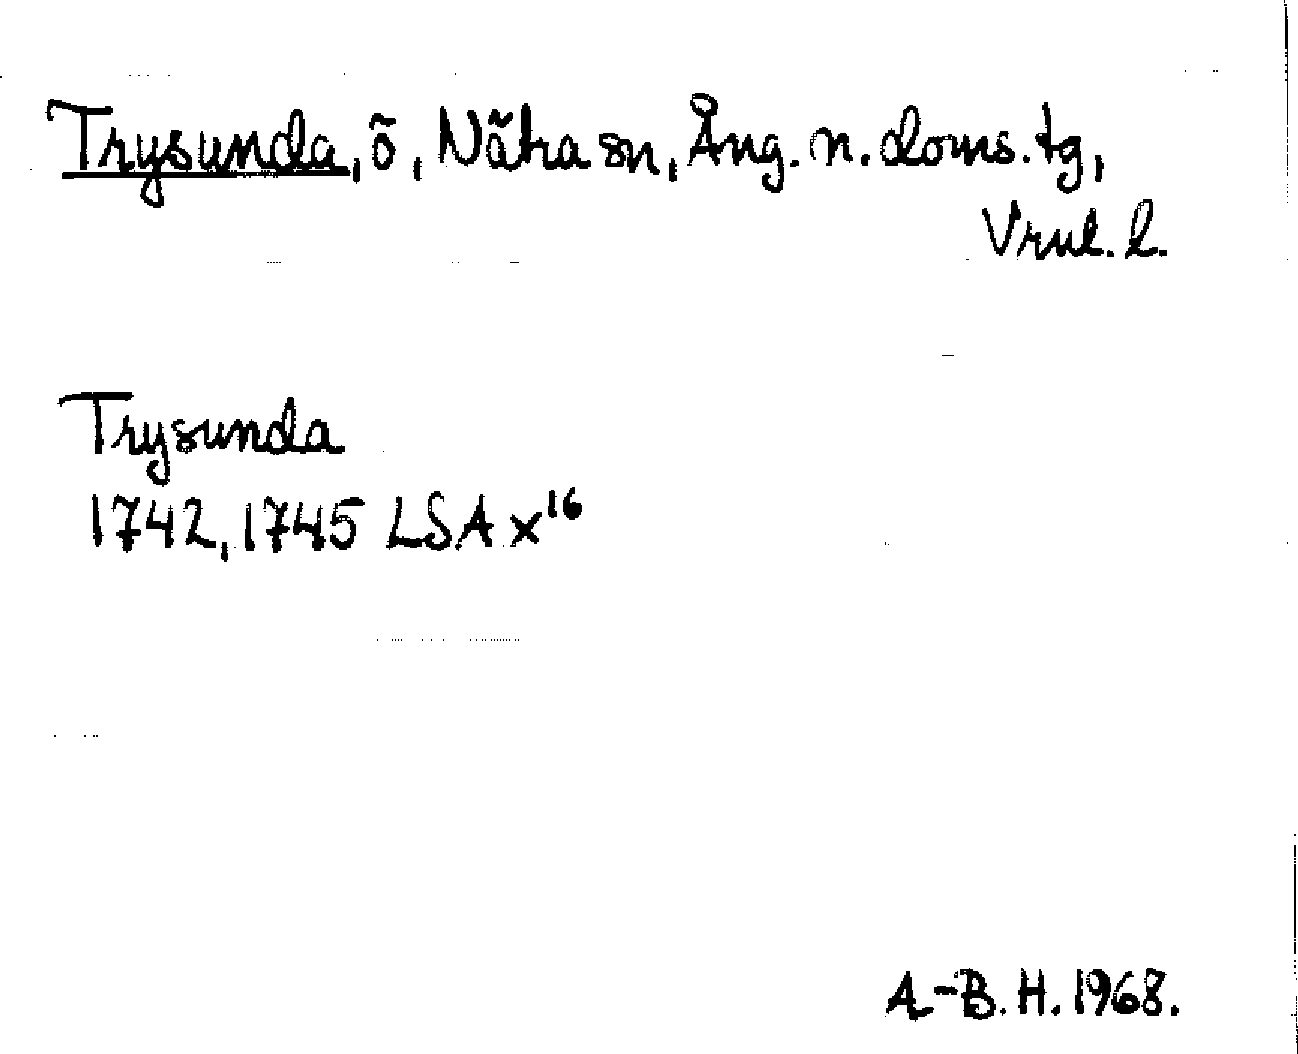 Trysunda, ö, Nätra sn, Ång. n. doms. tg,
Vrnl. l.
Trysunda
1742, 1745 LSA x¹⁶
A-B. H. 1968.